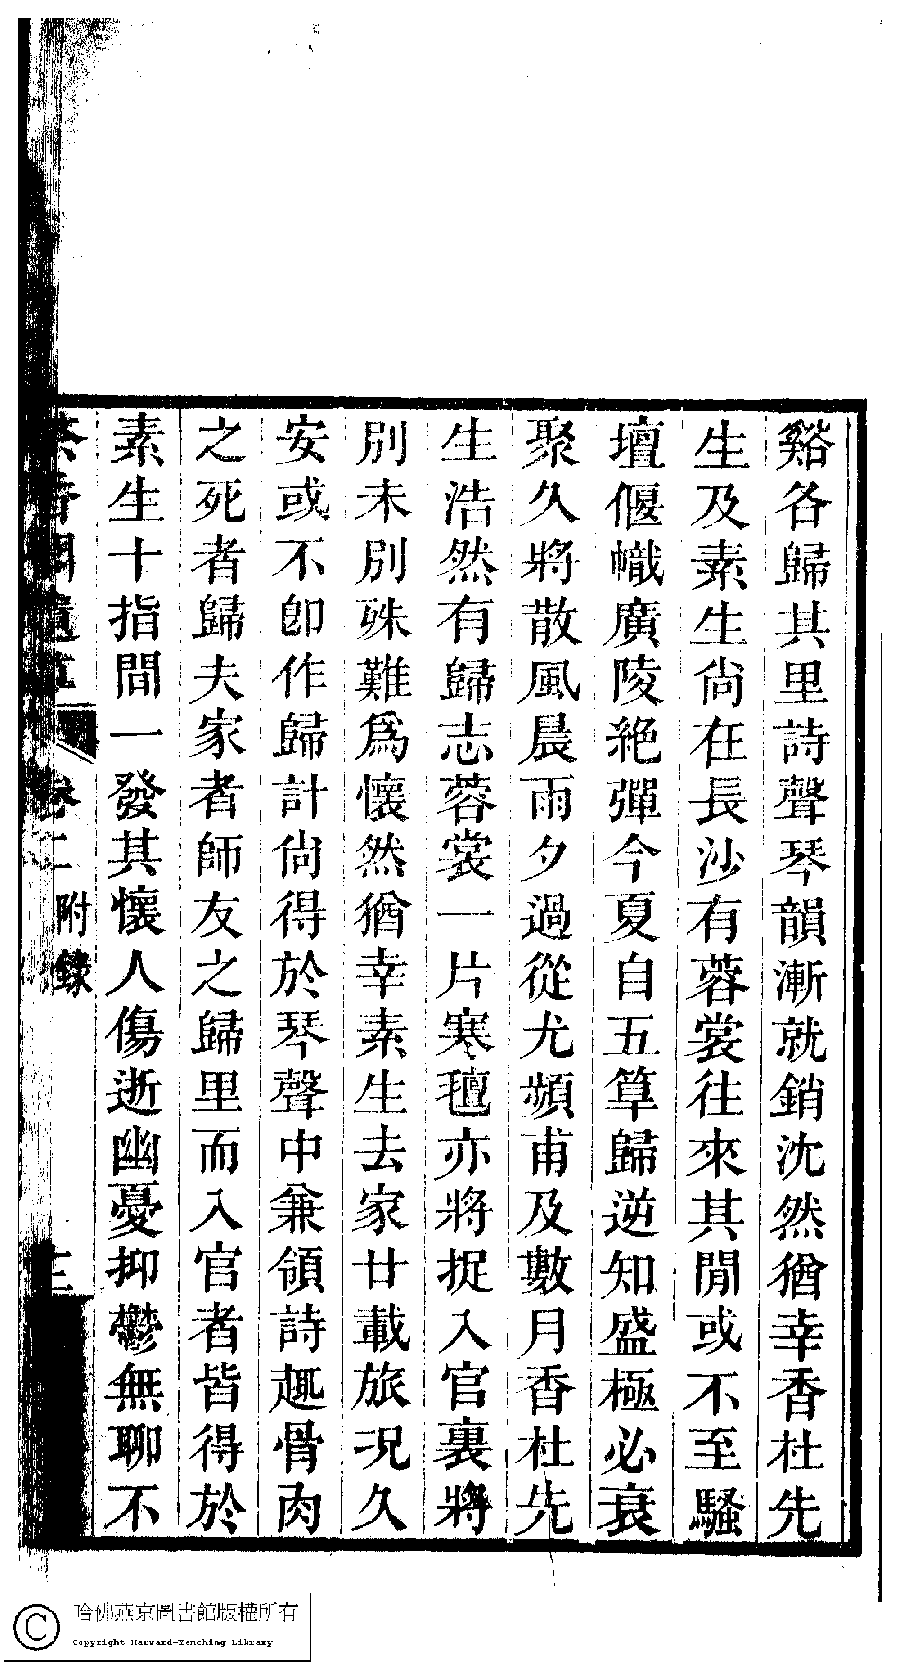 谿各歸其里詩聲琴韻漸就銷沈然猶幸香杜先
生及素生尙在長沙有蓉裳往來其閒或不至騷
壇偃幟廣陵絕彈今夏自五筸歸逆知盛極必衰
聚久將散風晨雨夕過從尤頻甫及數月香杜先
生浩然有歸志蓉裳一片寒氊亦將捉入官裏將
別未別殊難爲懷然猶幸素生去家廿載旅况久
安或不卽作歸計尙得於琴聲中兼領詩趣骨肉
之死者歸夫家者師友之歸里而入官者皆得於
素生十指間一發其懷人傷逝幽憂抑鬱無聊不
卷二
附錄
哈佛燕京圖書館版權所有
Copyright Harvard-Yenching Library